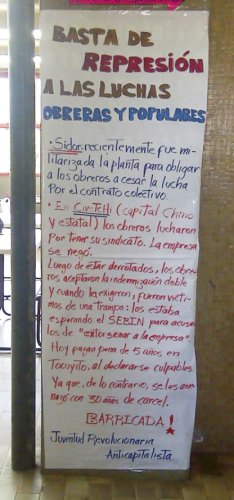 BASTA DE
REPRESIÓN
A LAS LUCHAS
OBRERAS Y POPULARES
• Sidor recientemente fue mi-
litarizada la planta para obligar
a los obreros a cesar la lucha
Por el contrato colectivo
• En CivTeHi (capital Chino
y estatal) los obreros lucharon
Por tener su sindicato. La empresa
se negó.
Luego de estar derrotados, los obre-
ros aceptaron la indemnización doble
y cuando la exigeron, fueron victi-
mas de una trampa: los estaba
esperando el SEBIN para acusar
los de "extorsionar a la empresa".
Hoy pagan pena de 5 años en
Tocuyito, al declararse culpables
Ya que, de lo contrario, se les ame-
nazó con 30 años de carcel.
¡BARRICADA!
Juventud Revolucionaria
Anticapitalista